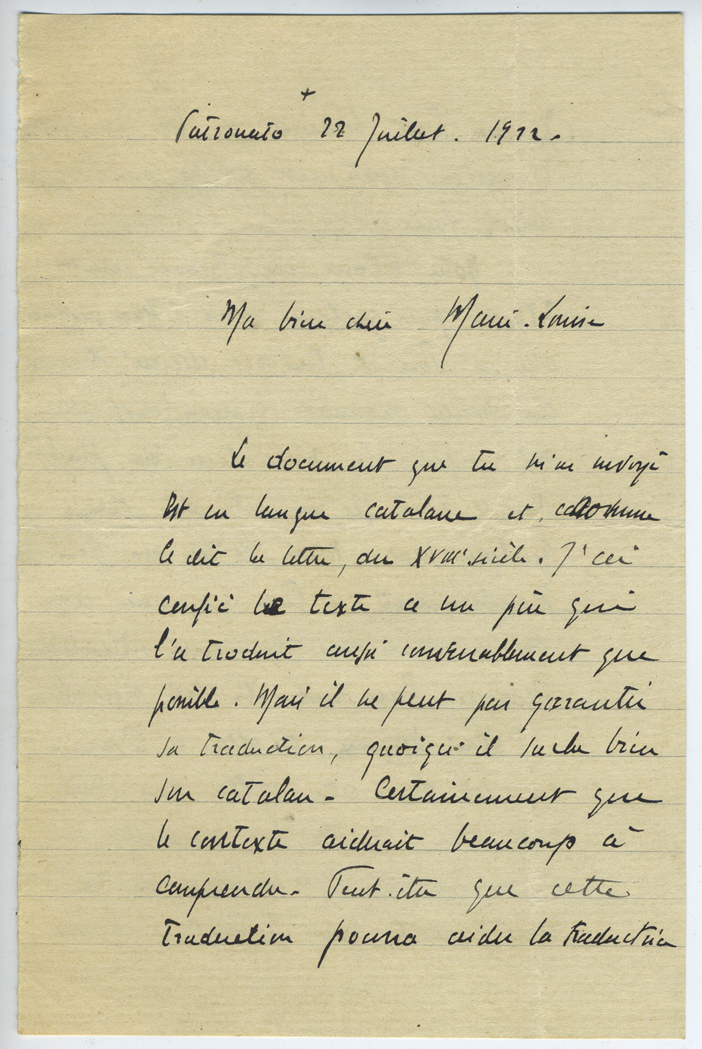 +
Patronato 22 Juillet. 1922.
Ma bien chère Marie-Louise
Le document que tu m'as envoyé
est en langue catalane et, comme
le dit la lettre, du XVIIIe siècle. J'ai
confié le texte à un père qui
l'a traduit aussi convenablement que
possible. Mais il ne peut pas garantir
sa traduction, quoiqu'il sache bien
son catalan. Certainement que
le contexte aiderait beaucoup à
comprendre. Peut-être que cette
traduction pourra aider la traductrice